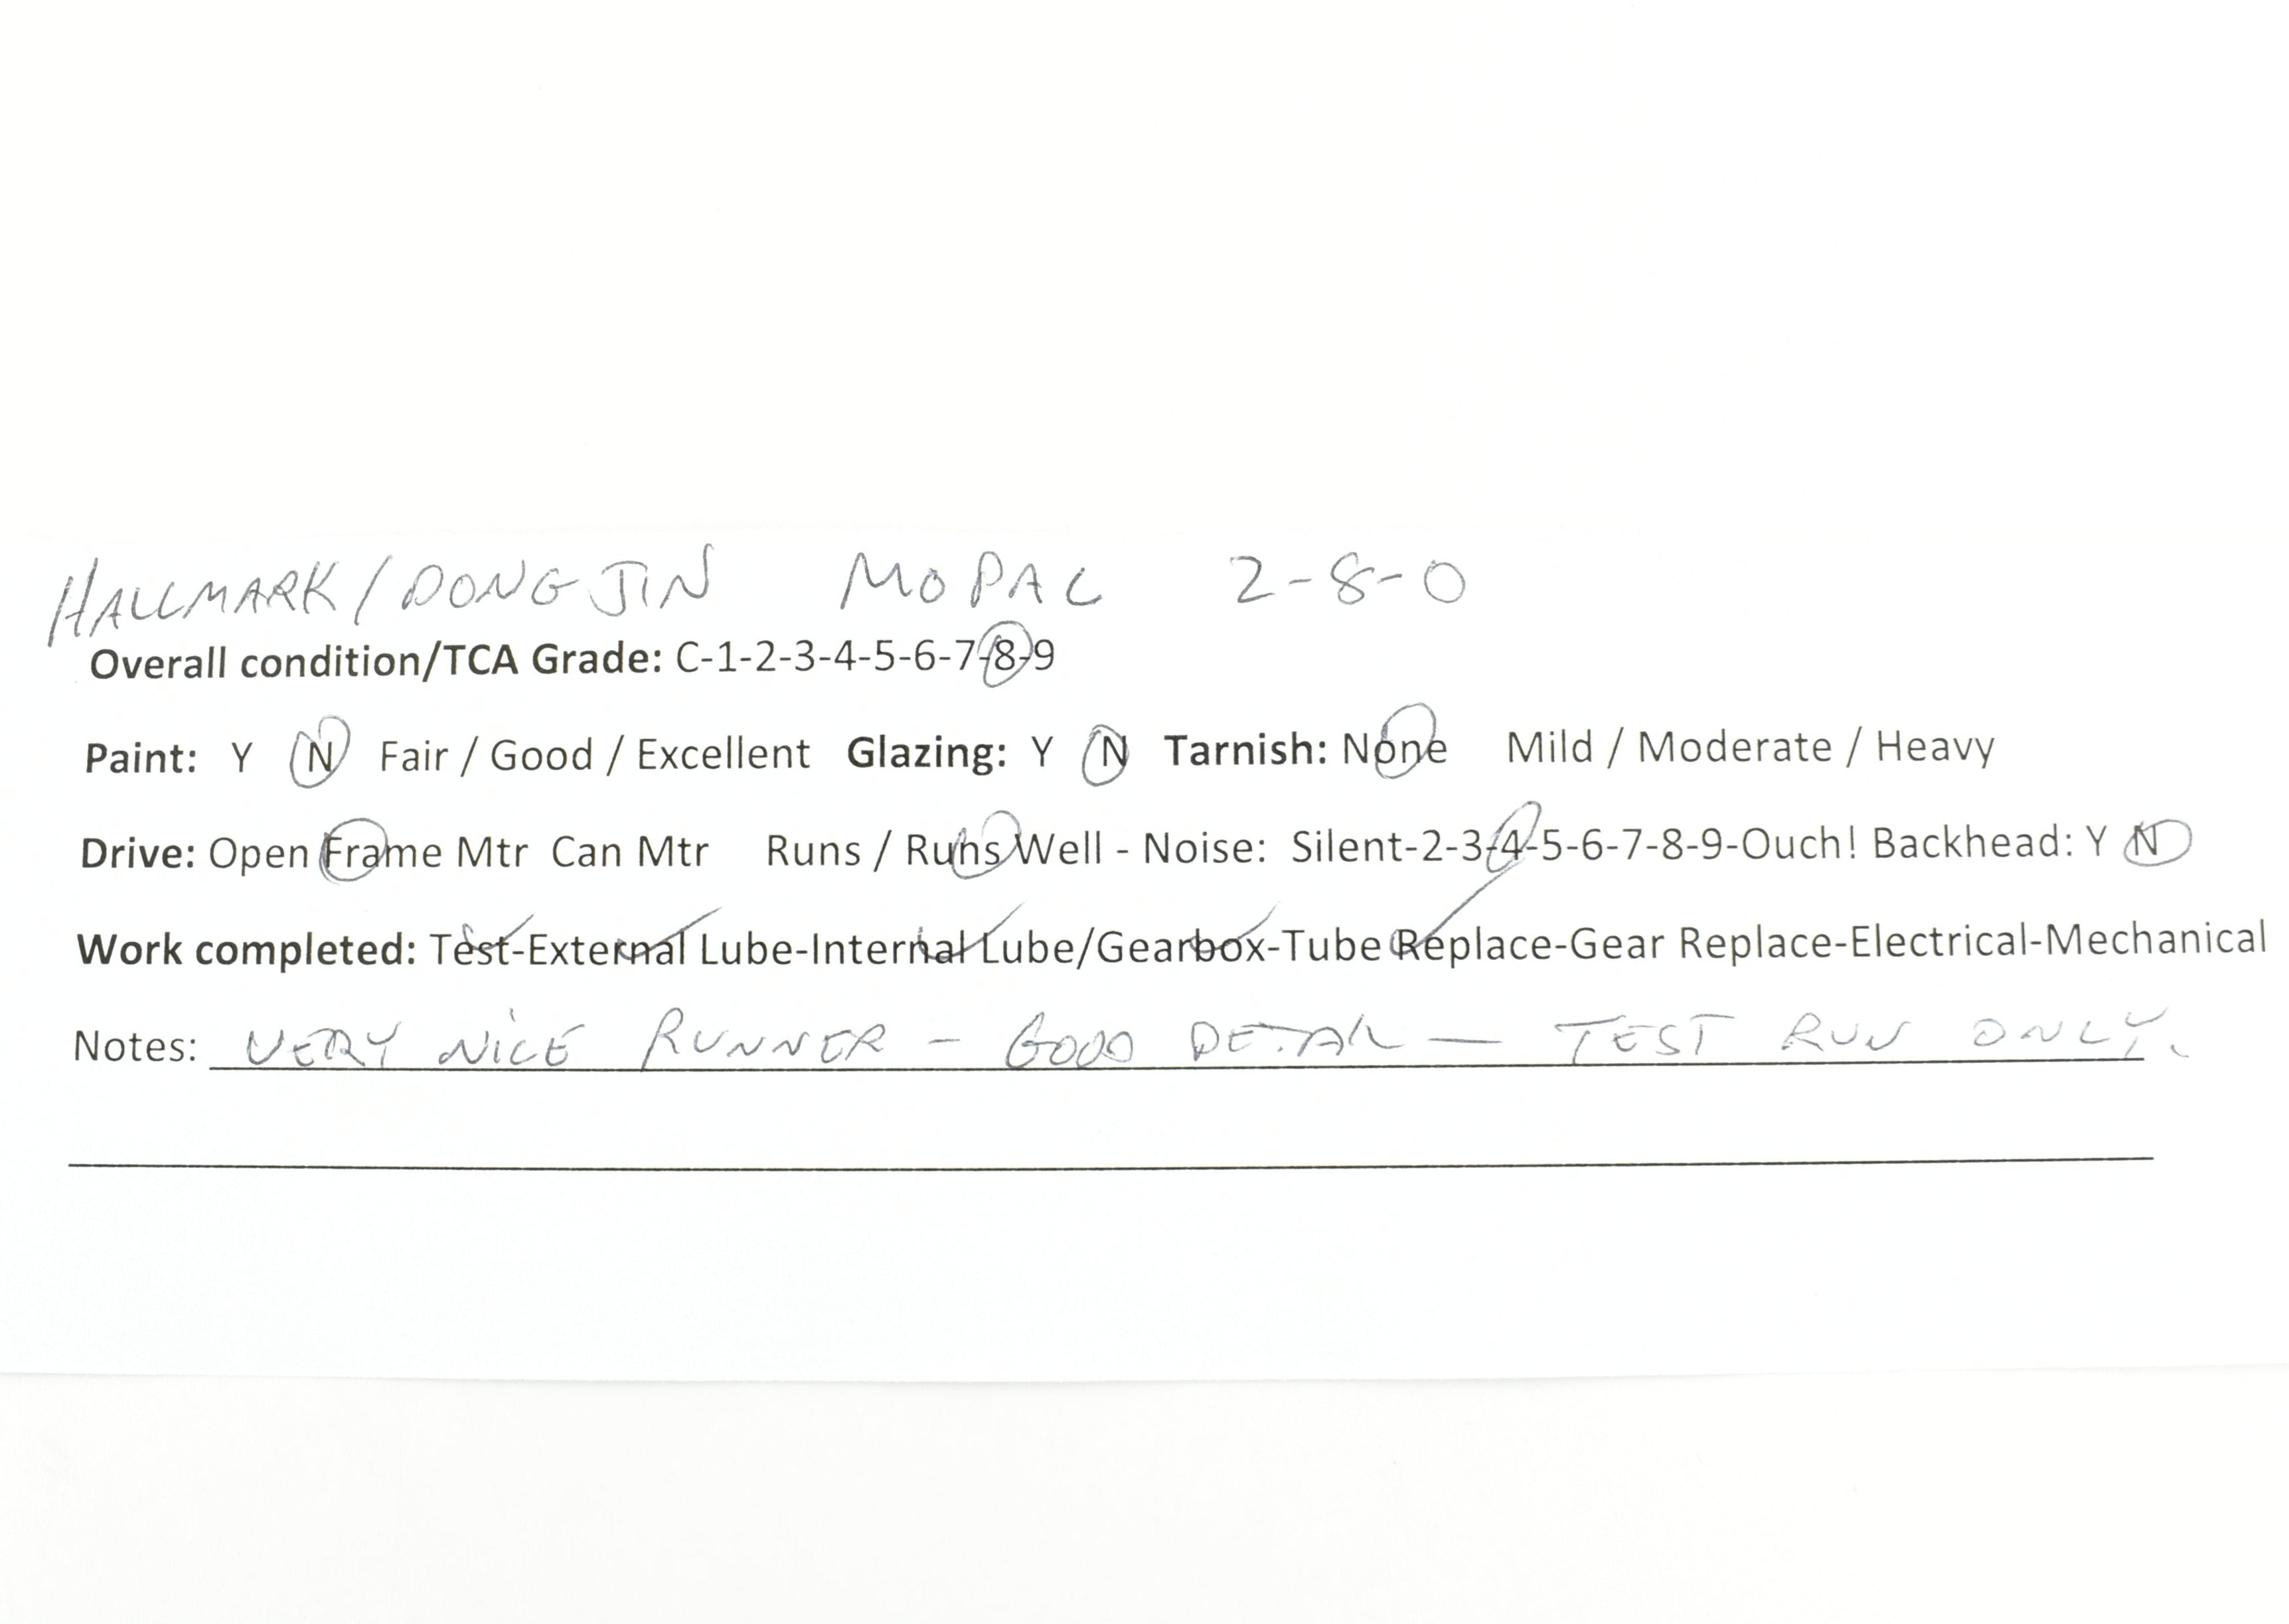 HALLMARK/DONG JIN MOPAC 2-8-0
Overall condition/TCA Grade: C-1-2-3-4-5-6-7-8-9
Paint: Y N Fair / Good / Excellent Glazing: Y N Tarnish: None Mild / Moderate / Heavy
Drive: Open Frame Mtr Can Mtr Runs / Runs Well - Noise: Silent-2-3-4-5-6-7-8-9-Ouch! Backhead: Y N
Work completed: Test-External Lube-Internal Lube/Gearbox-Tube Replace-Gear Replace-Electrical-Mechanical
Notes: VERY NICE RUNNER - GOOD DETAIL — TEST RUN ONLY.